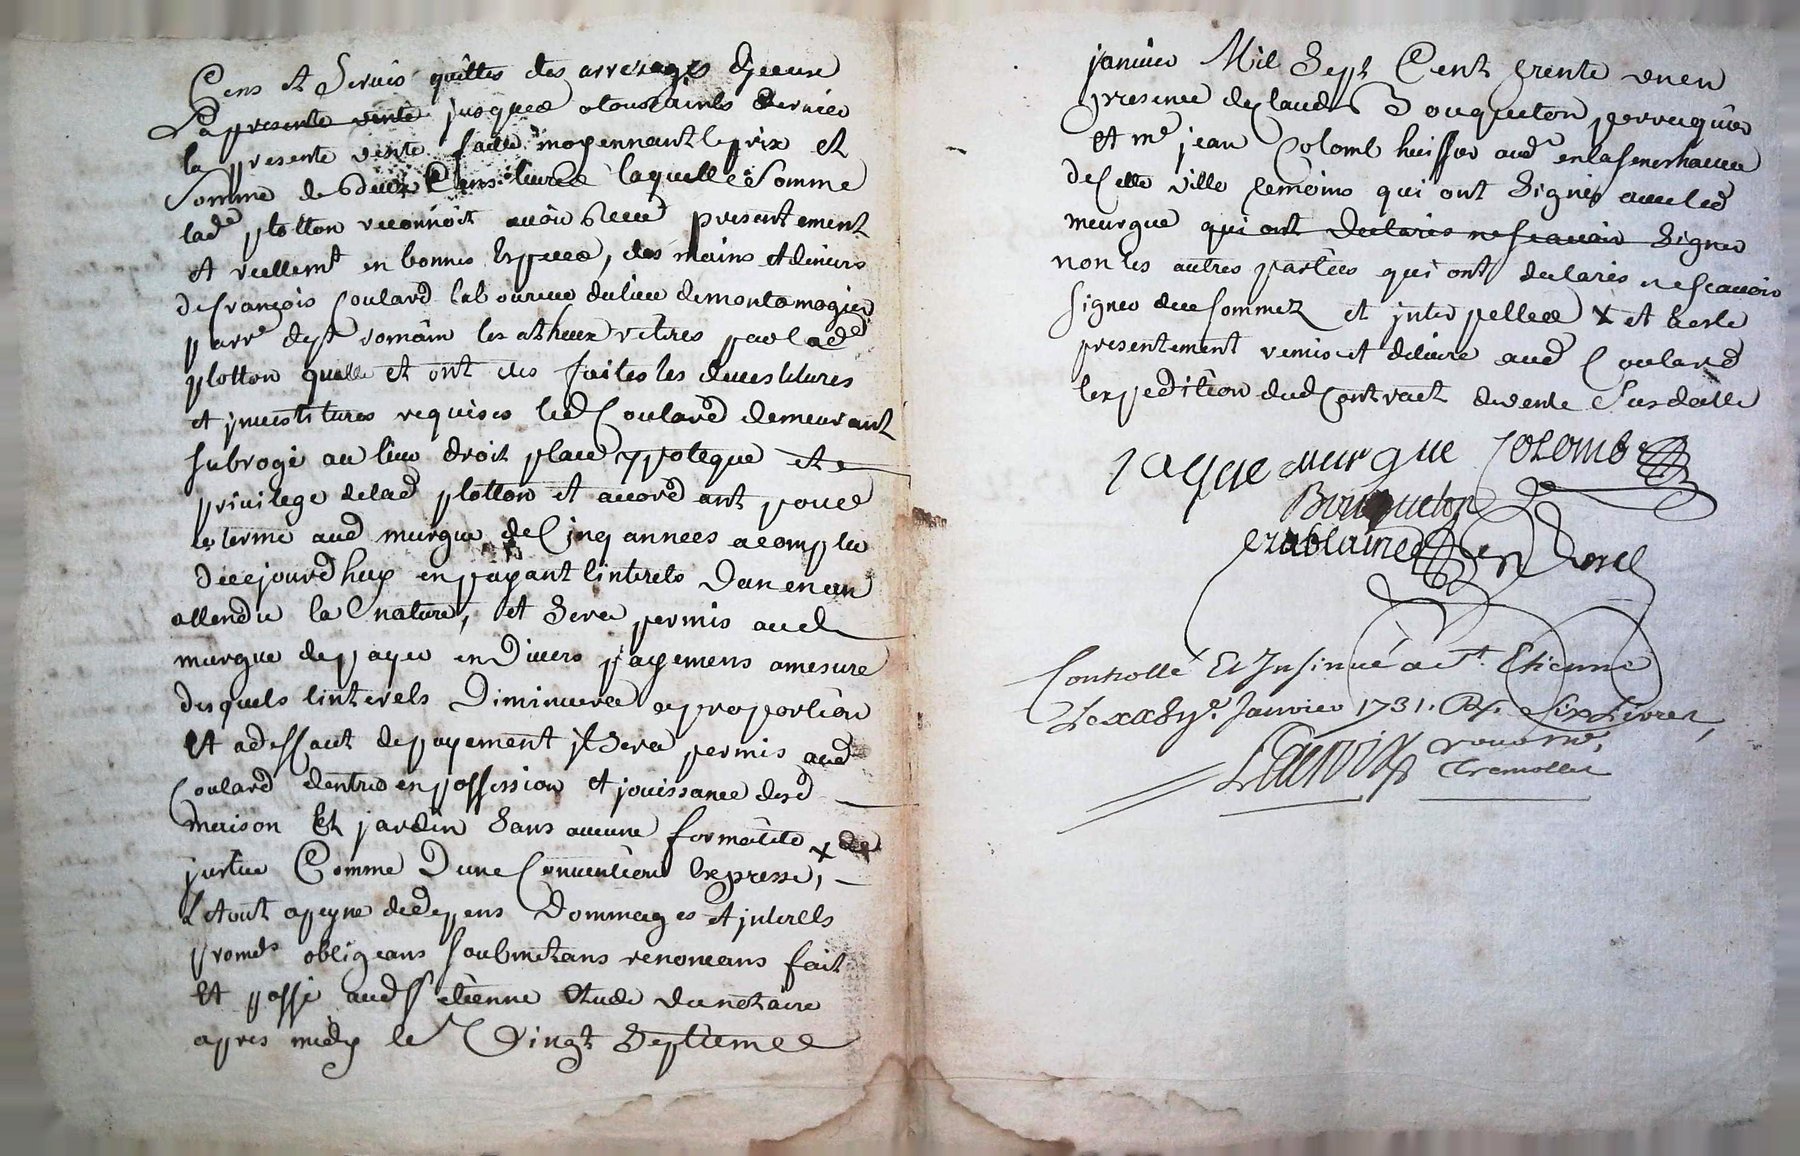 Cens et Servis quittes des arrerages
La presente vente jusques a toussaints dernier
la presente vente faitte moyennant le prix et
Somme de deux Cens livres laquelle Somme
lad.e plotton reconnoit avoir presentement
et reellemt en bonnes especes, des mains et deniers
de françois Coulard laboureur du lieu de montamagier
parr.e de st romain les atheux
plotton et ont faites les devestitures
et jnvestitures requises led Coulard demeurant
subrogé au lieu droit place ypoteque et
privilege de lad plotton et accordant pour
terme aud murgue de Cinq années a compter
de cejourdhuy en payant linterets Dan en an
attendu la nature, et Sera permis aud
murgue de payer en Divers payemens a mesure
desquels linterets Diminuera a proportion
et a deffaut de payement jl Sera permis aud
Coulard dentrer en possession et jouissance desd
maison Et jardin Sans aucune formalité x de
justice Comme Dune Convention Expresse,
Le tout a peyne de depens Dommages et jnterets
promts obligeans soubmetans renonceans fait
Et passé aud st etienne Etude du notaire
apres midy le Vingt Septieme
janvier Mil Sept Cent trente un en
presence de claude Bouqueton perruquier
et me jean Colomb huissier aud en la senechaucee
de Cette ville temoins qui ont Signés avec led
meurgue qui ont declarés ne scavoir Signer
non les autres parties qui ont declarés ne scavoir
signer de ce sommez et jnterpellez x et a esté
presentement remis et delivré aud Coulard
lexpedition dud Contract de vente Susdatté
Jacque murgue Colomb
Bouqueton
Controllé Et Insinué a St. Etienne
Janvier 1731. Six Livres,
Tremollet